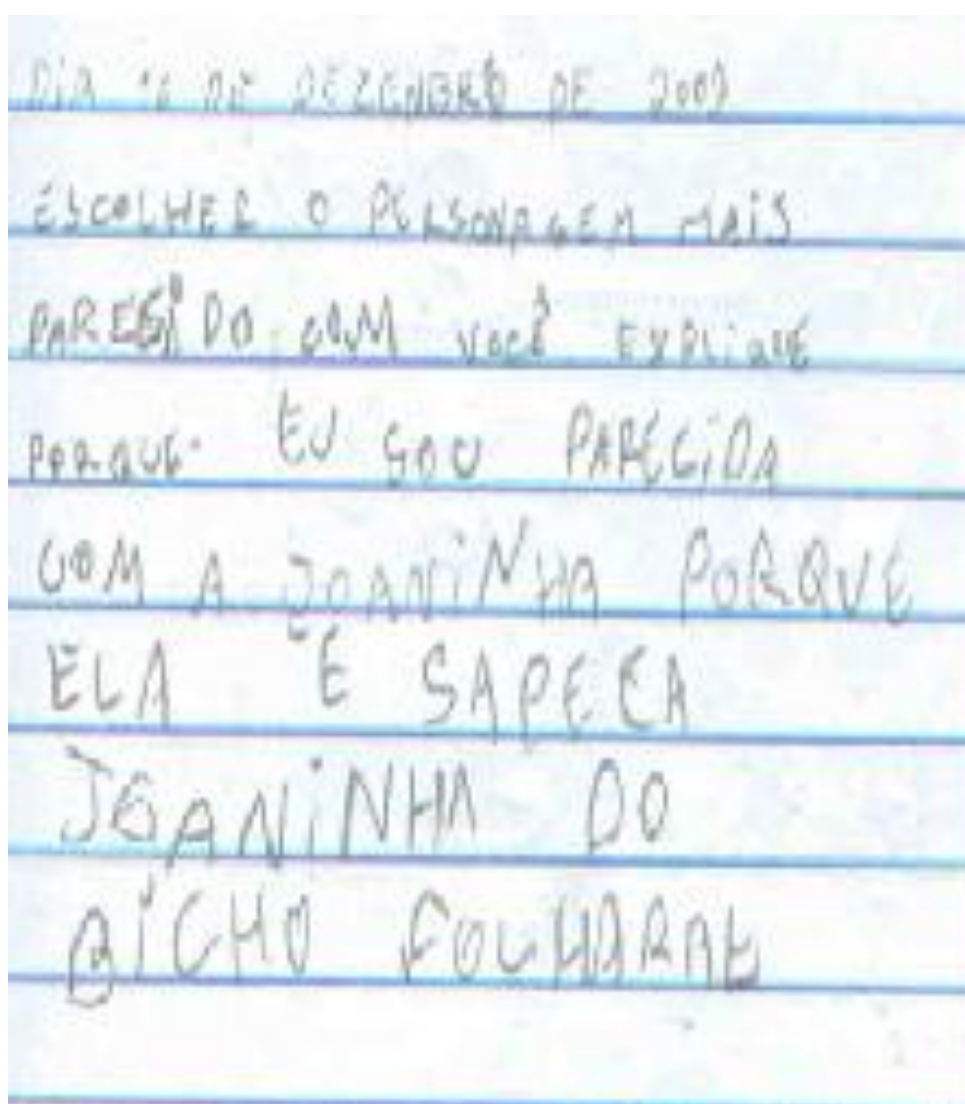 DIA DE DEZENBRO DE
ESCOLHER O PERSONAGEM MAIS
PARECIDO COM VOCÊ EXPLIQUE
PORQUE. EU SOU PARECIDA
COM A JOANINHA PORQUE
ELA É SAPECA
JOANINHA DO
BICHO FOLHARAL